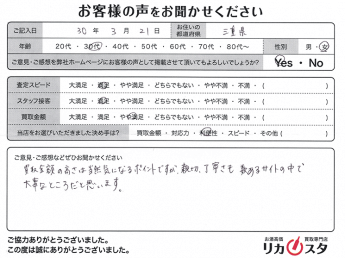 お客様の声をお聞かせください
ご記入日 30年 3月 21日 お住いの都道府県 三重県
年齢 20代・30代・40代・50代・60代・70代・80代〜 性別 男・女
ご意見・ご感想を弊社ホームページにお客様の声として掲載させて頂いてもよろしいでしょうか? Yes・No
査定スピード 大満足・満足・やや満足・どちらでもない・やや不満・不満・( )
スタッフ接客 大満足・満足・やや満足・どちらでもない・やや不満・不満・( )
買取金額 大満足・満足・やや満足・どちらでもない・やや不満・不満・( )
当店をお選びいただきました決め手は? 買取金額・対応力・利便性・スピード・その他( )
ご意見・ご感想などぜひお聞かせください
買取金額の高さは当然気になるポイントですが、親切、丁寧さも数あるサイトの中で
大事なところだと思います。
ご協力ありがとうございました。
この度は誠にありがとうございました。
お酒高価買取専門店
リカスタ